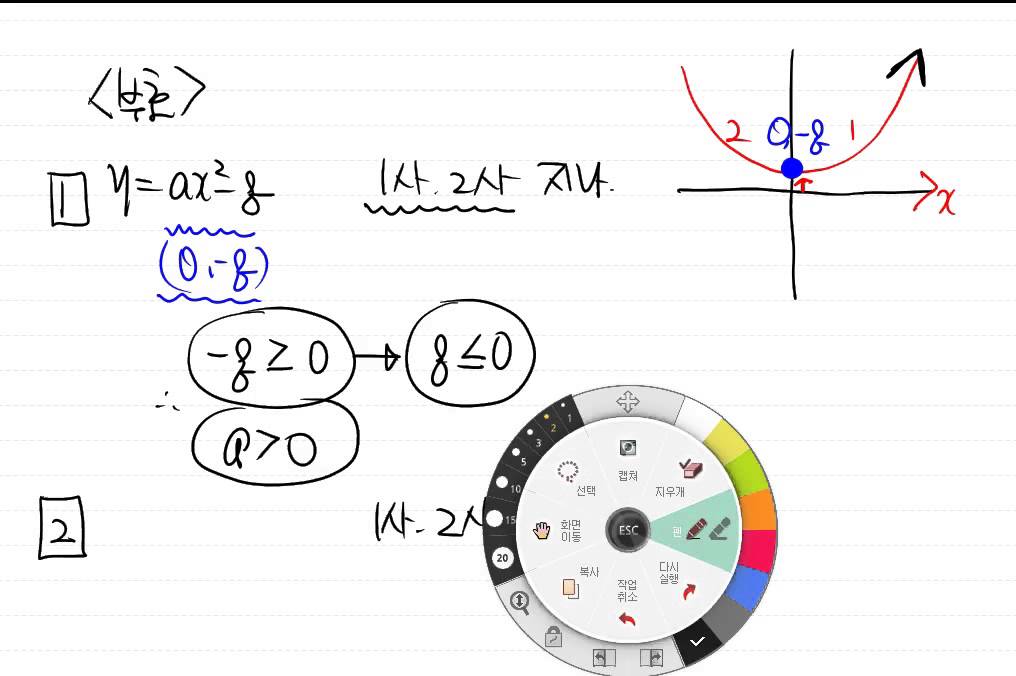 <부호>
1 y=ax²-q 1사. 2사 지나.
(0, -q)
-q ≥ 0 → q ≤ 0
∴ a>0
2 1사. 2사
2 0, -q 1
x
1
2
3
5
10
15
20
캡쳐
선택
지우개
화면
이동
ESC
펜
복사
작업
취소
다시
실행